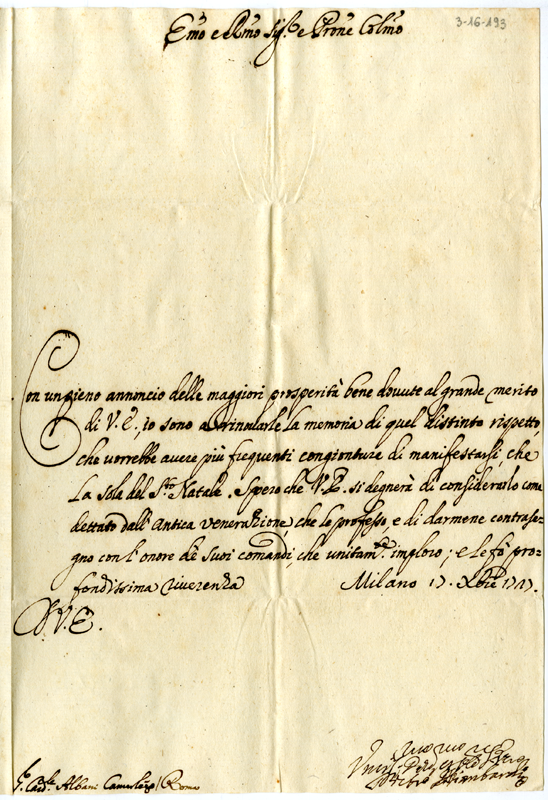 3-16-193
Emo e Rmo Sig.re e Prone Colmo
Con un pieno annoncio delle maggiori prosperità bene dovute al grande merito
di V. E. io sono a rinovarle la memoria di quel distinto rispetto,
che vorrebbe avere più frequenti congionture di manifestarsi, che
la sola del S.to Natale. Spero che V. E. si degnerà di considerarlo come
dettato dall' antica venerazione, che le professo, e di darmene contrase-
gno con l' onore de suoi comandi, che unitam.te imploro; e le fò pro-
fondissima riverenza Milano 17. Xbre 1717.
D. V. E.
S.r Card.le Albani Camerlengo / Roma